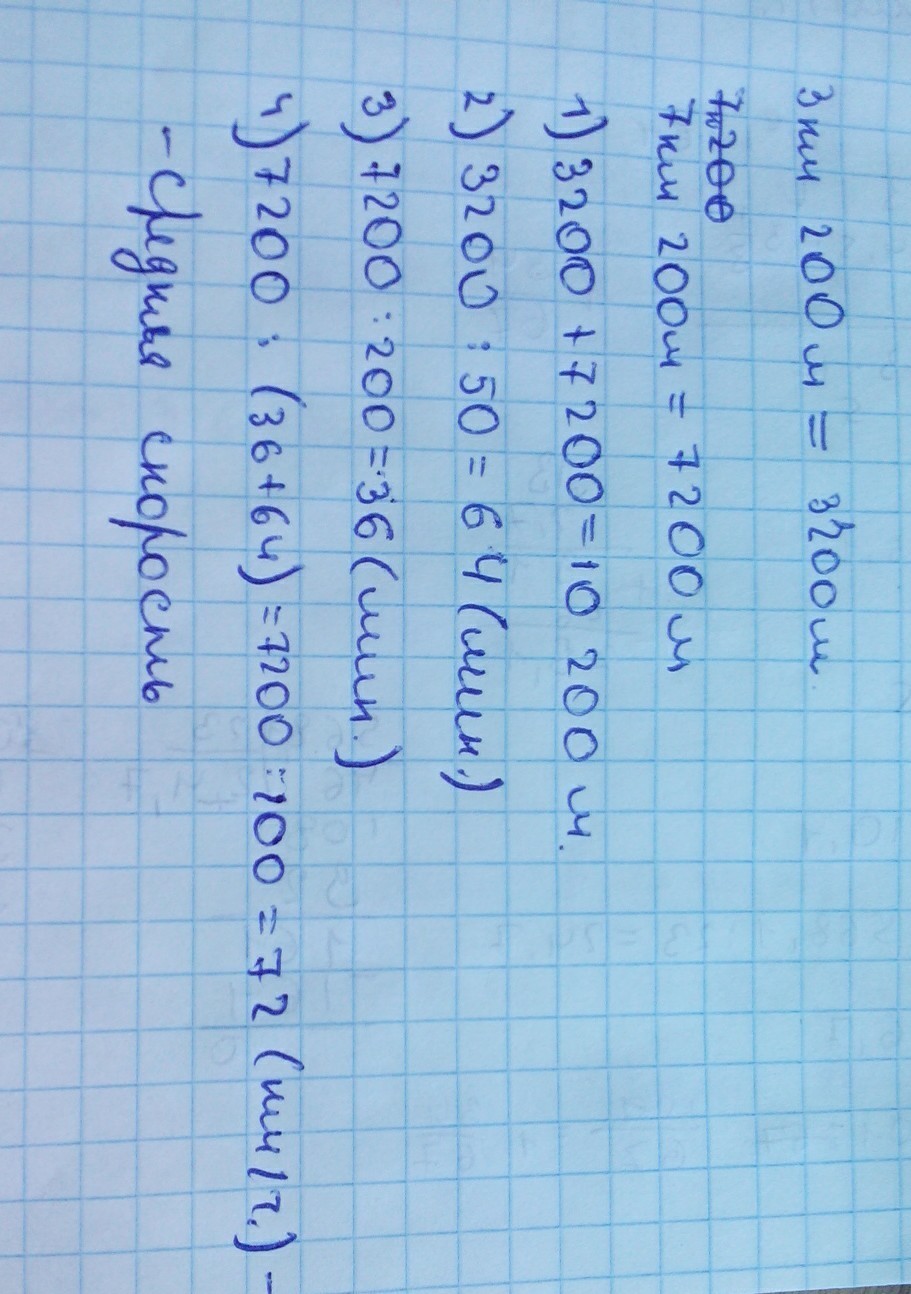 3 км 200 м = 3200 м.
7200
7 км 200 м = 7200 м
1) 3200 + 7200 = 10 200 м.
2) 3200 : 50 = 64 (мин.)
3) 7200 : 200 = 36 (мин.)
4) 7200 : (36+64) = 7200 : 100 = 72 (км/ч.) –
– средняя скорость